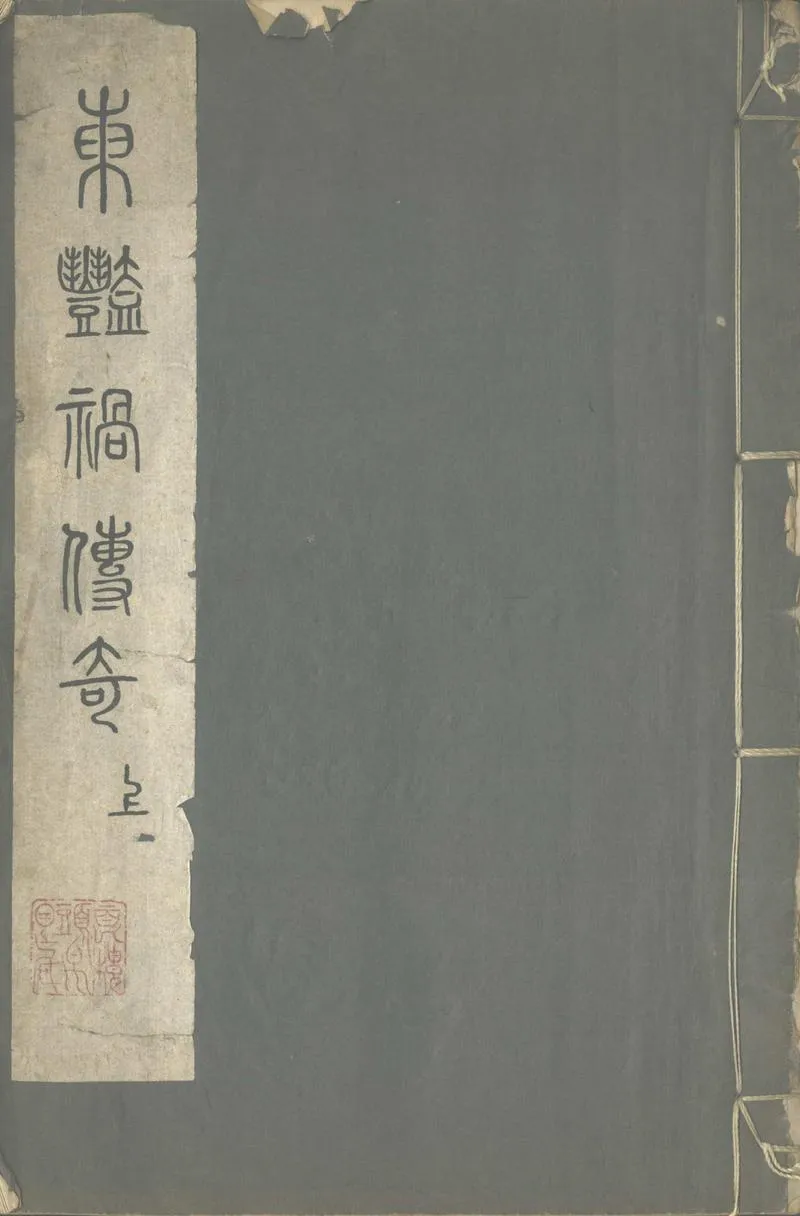 東豔禍傳奇
上